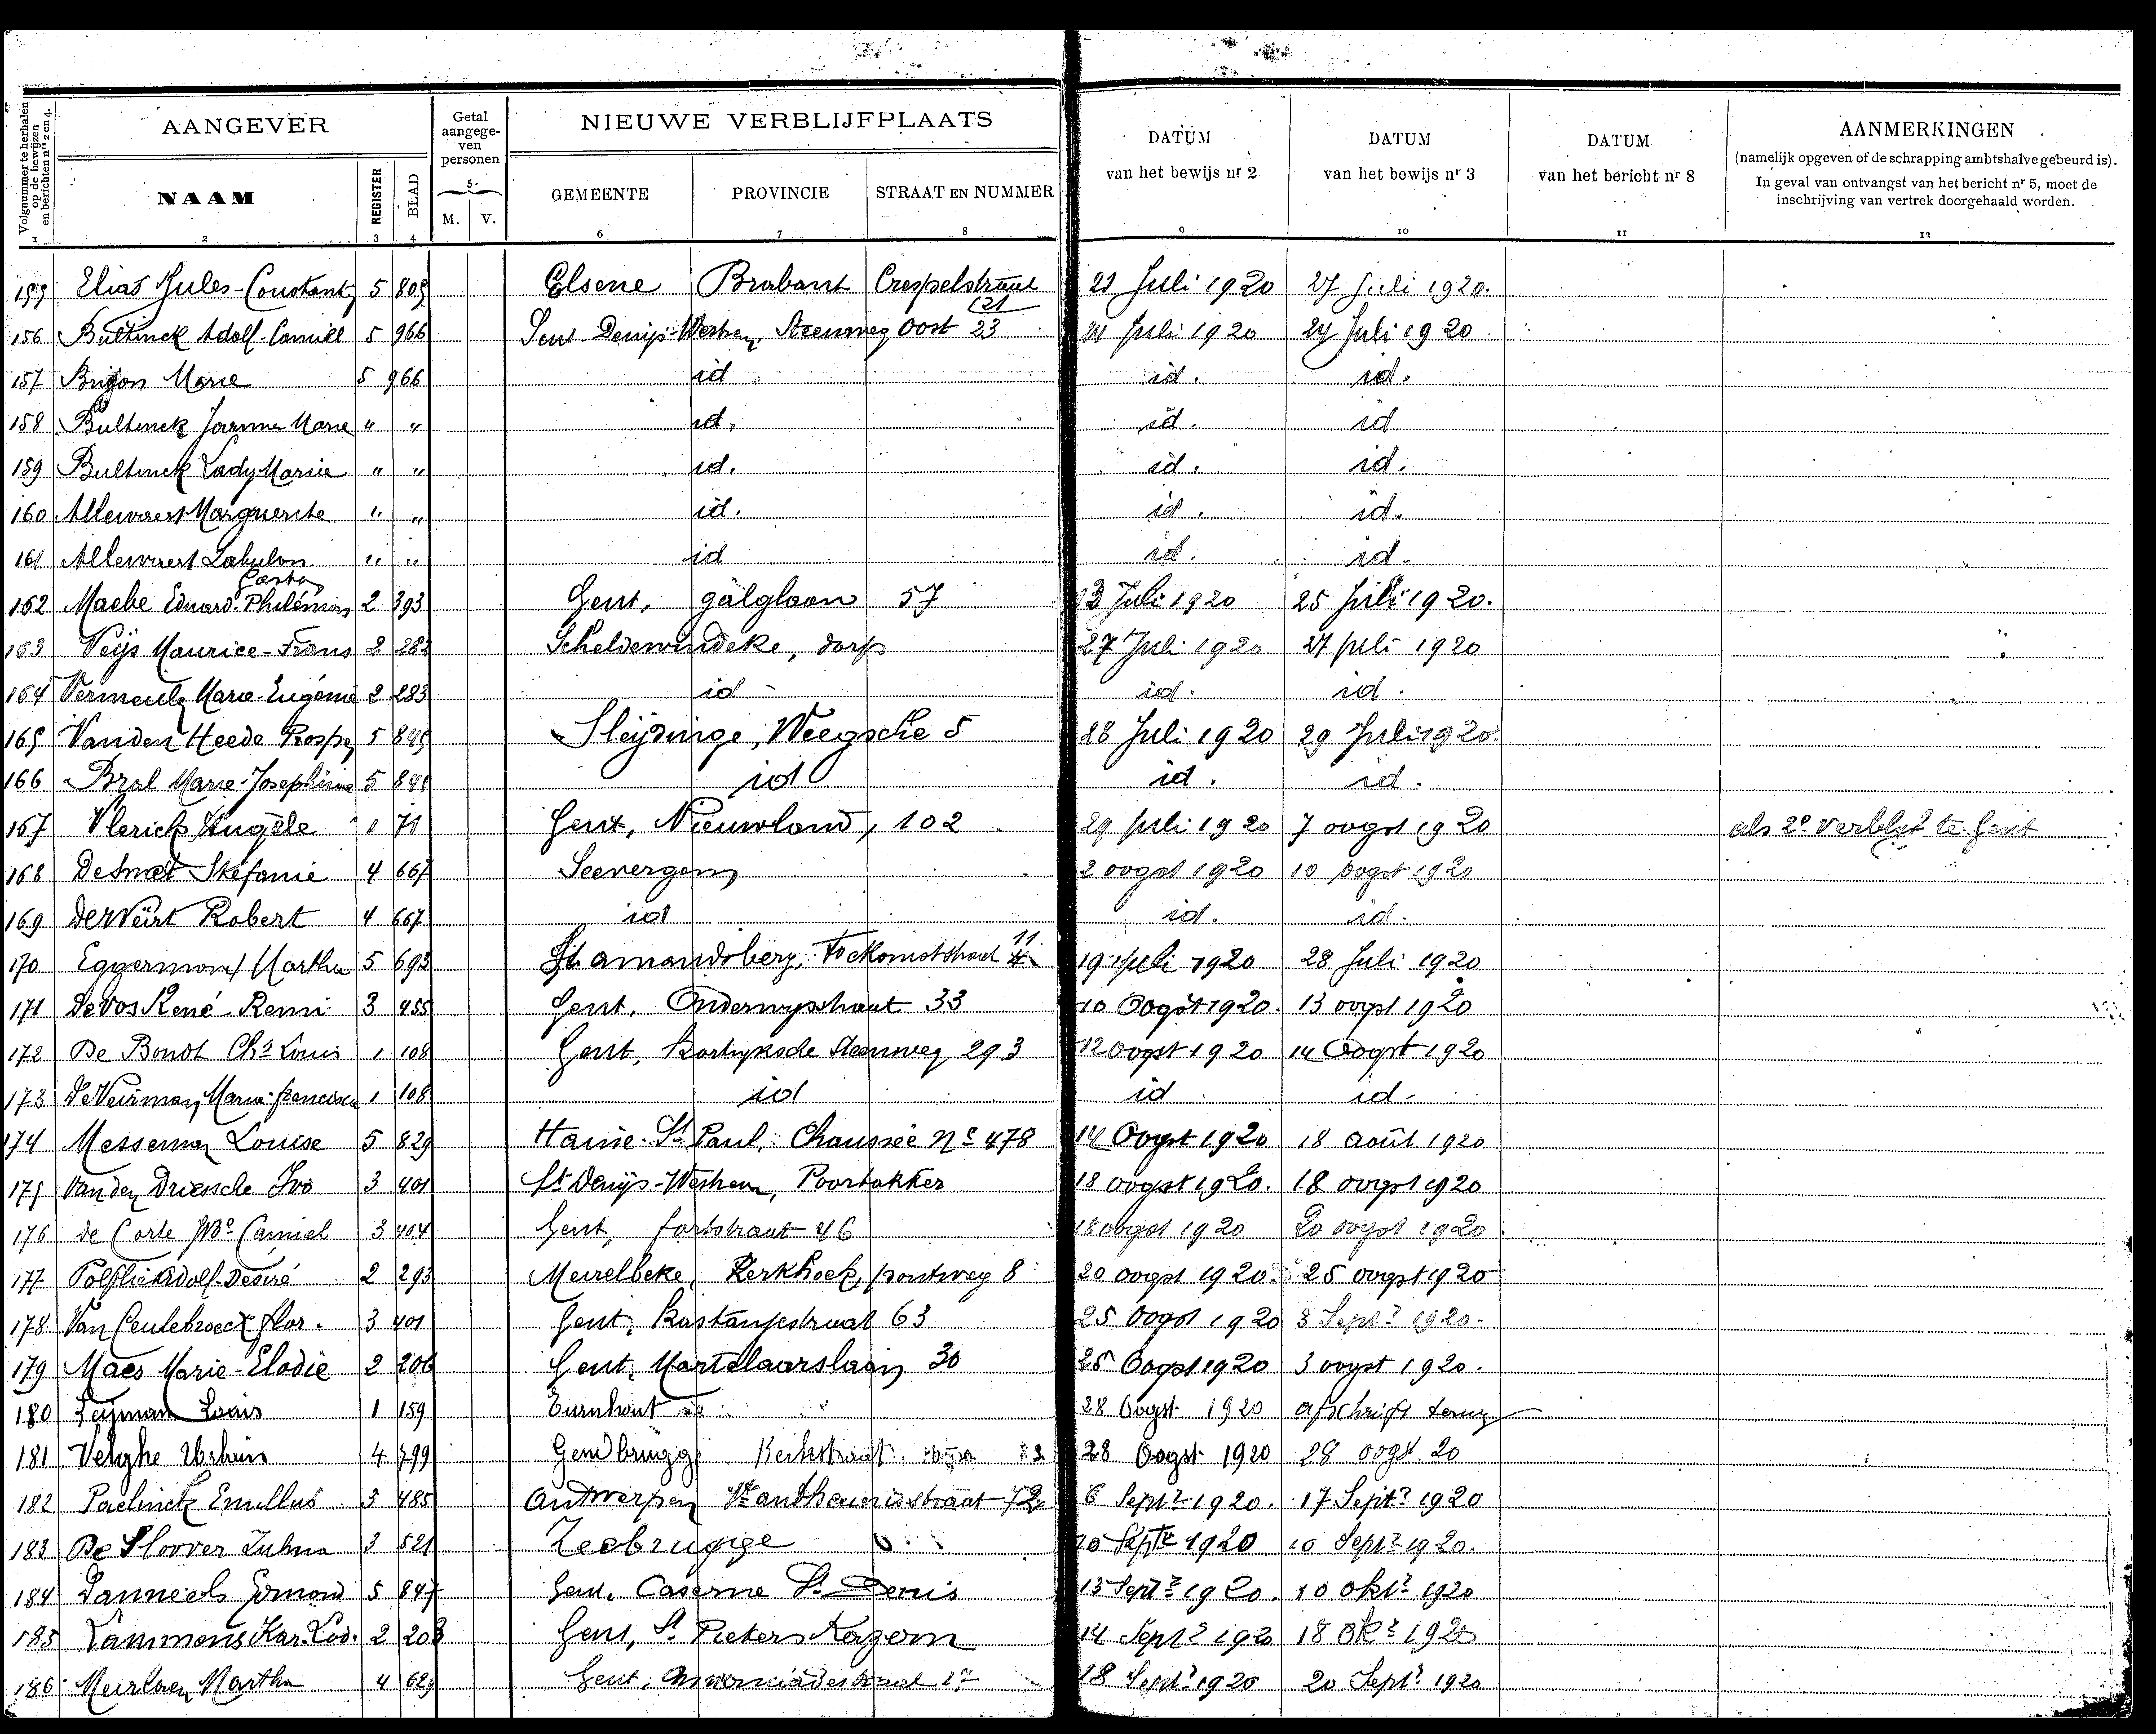 Volgnummer te herhalen op de bewijzen en berichten nrs 2 en 4.
AANGEVER
Getal aangege-ven personen
NIEUWE VERBLIJFPLAATS
DATUM van het bewijs nr 2
DATUM van het bewijs nr 3
DATUM van het bericht nr 8
AANMERKINGEN
(namelijk opgeven of de schrapping ambtshalve gebeurd is).
In geval van ontvangst van het bericht nr 5, moet de
inschrijving van vertrek doorgehaald worden.
NAAM REGISTER BLAD 5 M. V. GEMEENTE PROVINCIE STRAAT EN NUMMER
1 2 3 4 6 7 8 9 10 11 12
155 Elias Jules-Constant 5 805 Elsene Brabant Crespelstraat 21 Juli 1920 27 Juli 1920.
121
156 Bultinck Adolf-Camill 5 966 Sint Denijs Westrem, Steenweg Oost 23 24 Juli 1920 24 Juli 1920
157 Marie 5 966 id id. id.
158 Bultinck Marie " " id. id. id
159 Bultinck Lady Marie " " id. id. id.
160 Allewaert Marguerite " " id. id. id.
161 Allewaert " " id id. id.
Gaston
162 Maebe Eduard-Philémon 2 393 Gent, galglaan 57 13 Juli 1920 25 Juli 1920.
163 Veijs Maurice-Frans 2 283 Scheldewindeke, dorp 27 Juli 1920 27 juli 1920
164 Marie-Eugénie 2 283 id id. id.
165 Vanden Heede Prosper 5 845 Sleijdinge, Weegsche 5 28 Juli 1920 29 Juli 1920.
166 Bral Marie-Josephine 5 845 id id. id.
167 Vlerick Angèle 1 71 Gent, Nieuwland, 102 29 juli 1920 7 oogst 1920 als 2e verblijf te Gent
168 DeSmet Stéfanie 4 667 Seevergem 2 oogst 1920 10 oogst 1920
169 Robert 4 667 id id. id.
170 Eggermont Martha 5 693 St amandsberg, Toekomststraat 11 19 juli 1920 28 Juli 1920
171 DeVos René-Remi 3 455 Gent, Onderwijsstraat 33 10 Oogst 1920. 13 oogst 1920
172 De Bondt Chs Louis 1 108 Gent, Kortrijksche Steenweg 293 12 oogst 1920 14 Oogst 1920
173 De Veirman, Marie-francisca 1 108 id id id.
174 Messeman Louise 5 829 Haine-St Paul, Chaussée No 478 14 Oogst 1920 18 août 1920
175 Van den Driessche Ivo 3 401 St Denijs-Westrem, Poortakker 18 oogst 1920. 18 oogst 1920
176 de Corte Camiel 3 404 Gent, fortstraat 46 18 oogst 1920 20 oogst 1920
177 Polfliet Adolf-Desiré 2 293 Meirelbeke, Kerkhoek, pontweg 8 20 oogst 1920. 25 oogst 1920
178 Van Ceulebroeck Flor. 3 401 Gent, Kastanjestraat 63 25 Oogst 1920 3 Septr 1920.
179 Maes Marie-Elodie 2 206 Gent, Martelaarslaan 30 25 Oogst 1920 3 oogst 1920.
180 Louis 1 159 Turnhout 28 Oogst 1920 afschrift terug
181 Velghe Urbain 4 799 Gendbrugge Kerkstraat 28 Oogst 1920 28 oogst. 20
182 Paelinck 3 485 Antwerpen 72 6 Septr 1920. 17 Septr 1920
183 De Sloover 3 521 Zeebrugge 10 Septr 1920 10 Septr 1920.
184 Edmond 5 847 Gent. Caserne St. Denis 13 Septr 1920. 10 oktr 1920
185 Lammens Kar. Lod. 2 208 Gent, St Pieters Kazern 14 Septr 1920 18 Oktr 1920
186 Martha 4 629 Gent, 18 Septr 1920 20 Septr 1920